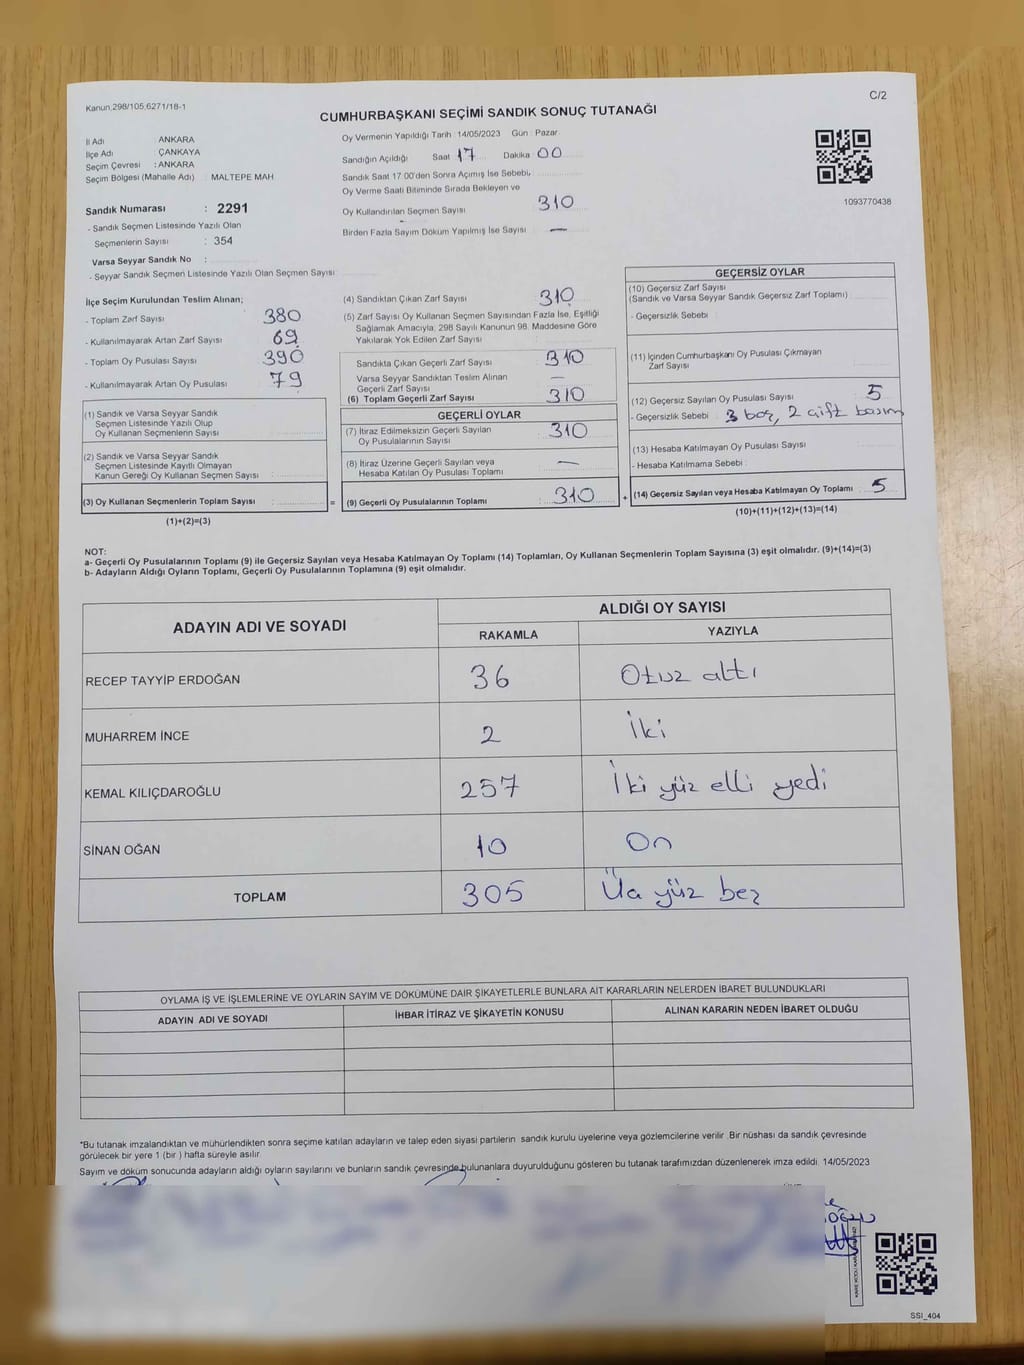 Kanun,298/105,6271/18-1
C/2
CUMHURBAŞKANI SEÇİMİ SANDIK SONUÇ TUTANAĞI
İl Adı ANKARA
İlçe Adı ÇANKAYA
Seçim Çevresi : ANKARA
Seçim Bölgesi (Mahalle Adı) : MALTEPE MAH
Oy Vermenin Yapıldığı Tarih 14/05/2023 Gün : Pazar
Sandığın Açıldığı Saat 17 Dakika 00
Sandık Saat 17:00'den Sonra Açımış İse Sebebi,
Oy Verme Saati Bitiminde Sırada Bekleyen ve
Oy Kullandırılan Seçmen Sayısı 310
Birden Fazla Sayım Döküm Yapılmış İse Sayısı —
1093770438
Sandık Numarası : 2291
- Sandık Seçmen Listesinde Yazılı Olan
Seçmenlerin Sayısı : 354
Varsa Seyyar Sandık No :
- Seyyar Sandık Seçmen Listesinde Yazılı Olan Seçmen Sayısı:
İlçe Seçim Kurulundan Teslim Alınan;
- Toplam Zarf Sayısı 380
- Kullanılmayarak Artan Zarf Sayısı 69
- Toplam Oy Pusulası Sayısı 390
- Kullanılmayarak Artan Oy Pusulası 79
(1) Sandık ve Varsa Seyyar Sandık
Seçmen Listesinde Yazılı Olup
Oy Kullanan Seçmenlerin Sayısı :
(2) Sandık ve Varsa Seyyar Sandık
Seçmen Listesinde Kayıtlı Olmayan
Kanun Gereği Oy Kullanan Seçmen Sayısı :
(3) Oy Kullanan Seçmenlerin Toplam Sayısı : =
(1)+(2)=(3)
(4) Sandıktan Çıkan Zarf Sayısı 310
(5) Zarf Sayısı Oy Kullanan Seçmen Sayısından Fazla İse, Eşitliği
Sağlamak Amacıyla, 298 Sayılı Kanunun 98. Maddesine Göre
Yakılarak Yok Edilen Zarf Sayısı :
Sandıkta Çıkan Geçerli Zarf Sayısı 310
Varsa Seyyar Sandıktan Teslim Alınan
Geçerli Zarf Sayısı —
(6) Toplam Geçerli Zarf Sayısı 310
GEÇERLİ OYLAR
(7) İtiraz Edilmeksizin Geçerli Sayılan
Oy Pusulalarının Sayısı : 310
(8) İtiraz Üzerine Geçerli Sayılan veya
Hesaba Katılan Oy Pusulası Toplamı : —
(9) Geçerli Oy Pusulalarının Toplamı : 310 +
GEÇERSİZ OYLAR
(10) Geçersiz Zarf Sayısı
(Sandık ve Varsa Seyyar Sandık Geçersiz Zarf Toplamı)
- Geçersizlik Sebebi :
(11) İçinden Cumhurbaşkanı Oy Pusulası Çıkmayan
Zarf Sayısı
(12) Geçersiz Sayılan Oy Pusulası Sayısı 5
- Geçersizlik Sebebi : 3 boş, 2 çift basım
(13) Hesaba Katılmayan Oy Pusulası Sayısı
- Hesaba Katılmama Sebebi :
(14) Geçersiz Sayılan veya Hesaba Katılmayan Oy Toplamı 5
(10)+(11)+(12)+(13)=(14)
NOT:
a- Geçerli Oy Pusulalarının Toplamı (9) ile Geçersiz Sayılan veya Hesaba Katılmayan Oy Toplamı (14) Toplamları, Oy Kullanan Seçmenlerin Toplam Sayısına (3) eşit olmalıdır. (9)+(14)=(3)
b- Adayların Aldığı Oyların Toplamı, Geçerli Oy Pusulalarının Toplamına (9) eşit olmalıdır.
ADAYIN ADI VE SOYADI ALDIĞI OY SAYISI
RAKAMLA YAZIYLA
RECEP TAYYİP ERDOĞAN 36 Otuz altı
MUHARREM İNCE 2 İki
KEMAL KILIÇDAROĞLU 257 İki yüz elli yedi
SİNAN OĞAN 10 On
TOPLAM 305 Üç yüz beş
OYLAMA İŞ VE İŞLEMLERİNE VE OYLARIN SAYIM VE DÖKÜMÜNE DAİR ŞİKAYETLERLE BUNLARA AİT KARARLARIN NELERDEN İBARET BULUNDUKLARI
ADAYIN ADI VE SOYADI İHBAR İTİRAZ VE ŞİKAYETİN KONUSU ALINAN KARARIN NEDEN İBARET OLDUĞU
*Bu tutanak imzalandıktan ve mühürlendikten sonra seçime katılan adayların ve talep eden siyasi partilerin sandık kurulu üyelerine veya gözlemcilerine verilir. Bir nüshası da sandık çevresinde
görülecek bir yere 1 (bir ) hafta süreyle asılır.
Sayım ve döküm sonucunda adayların aldığı oyların sayılarını ve bunların sandık çevresinde bulunanlara duyurulduğunu gösteren bu tutanak tarafımızdan düzenlenerek imza edildi. 14/05/2023
SSI_404